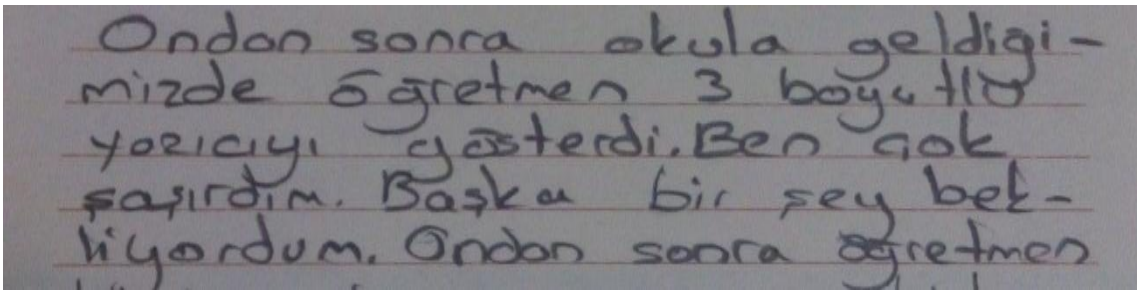 Ondan sonra okula geldigi-
mizde öğretmen 3 boyutlu
yazıcıyı gösterdi. Ben çok
şaşırdım. Başka bir şey bek-
liyordum. Ondan sonra öğretmen